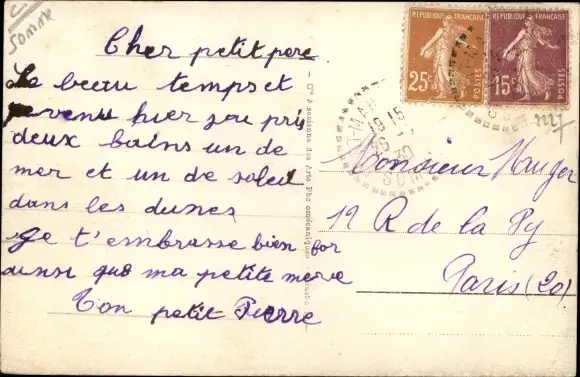 Somme
Cher petit pere
Le beau temps et
revenu hier j'ai pris
deux bains un de
mer et un de soleil
dans les dunes
Je t'embrasse bien for
ainsi que ma petite mere
Ton petit Pierre
REPUBLIQUE FRANÇAISE
25c
POSTES
REPUBLIQUE FRANÇAISE
15c
POSTES
19 15
30
SOMME
Monsieur Mauger
19 R de la Py
Paris (20)